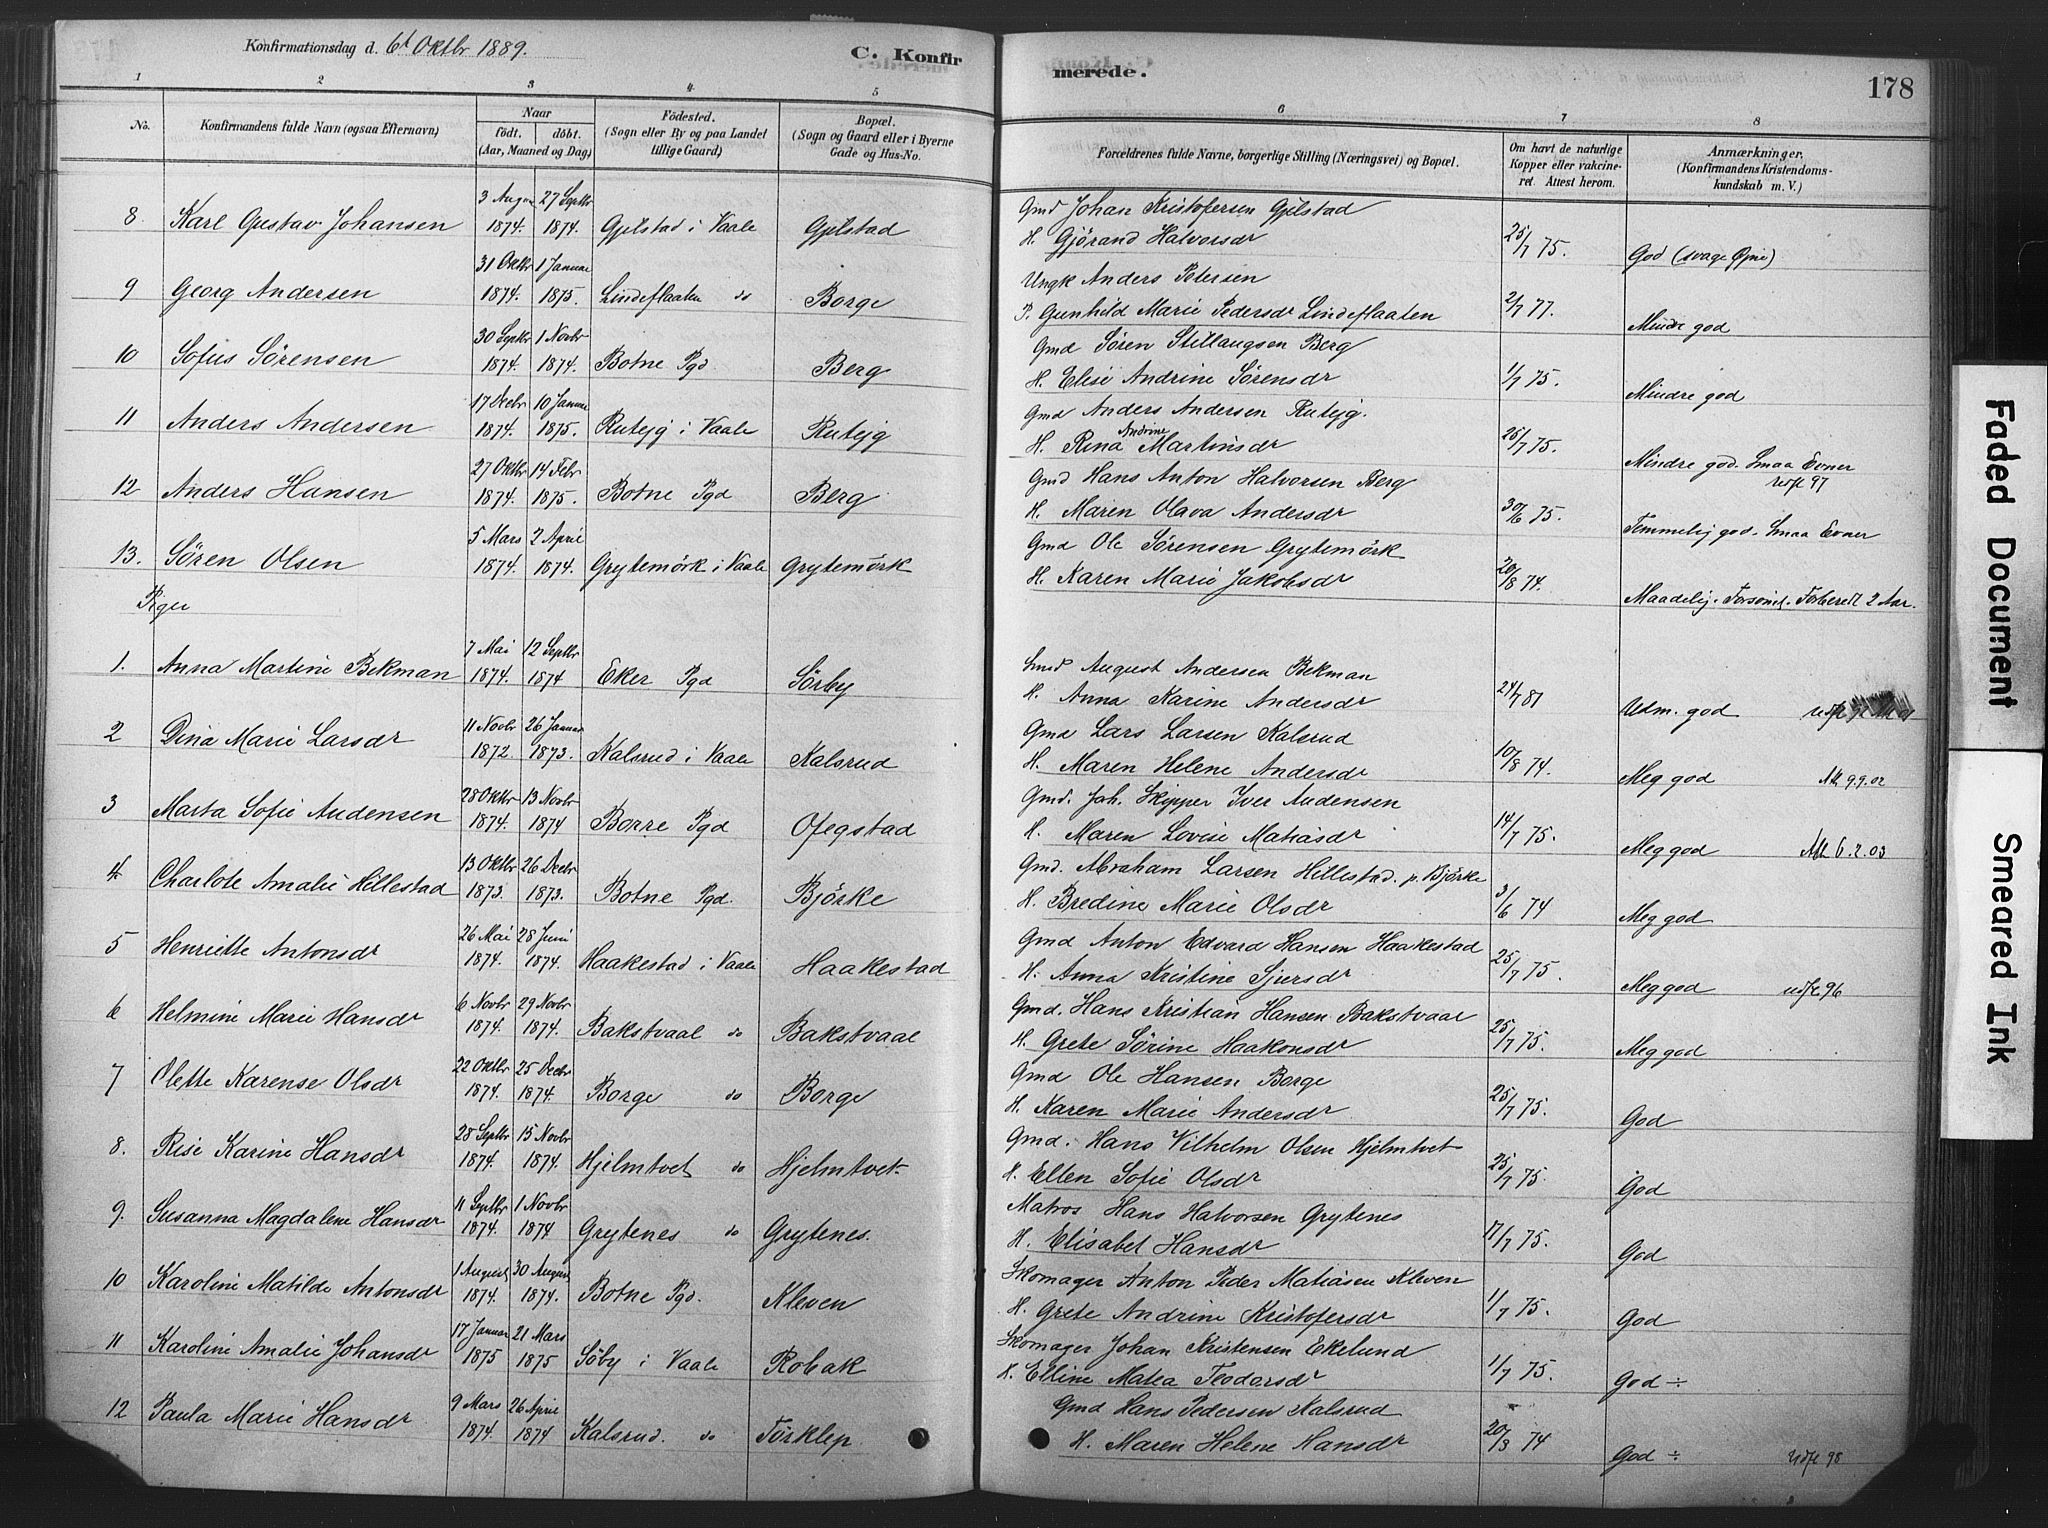 Konfirmationsdag d. 6t Oktbr 1889.
C. Konfir
merede.
178
1 2 3 4 5
6 7 8
No.
Konfirmandens fulde Navn (ogsaa Efternavn)
Naar
født. døbt.
(Aar, Maaned og Dag)
Fødested.
(Sogn eller By og paa Landet
tillige Gaard)
Bopæl.
(Sogn og Gaard eller i Byerne
Gade og Hus-No.
Forældrenes fulde Navne, borgerlige Stilling (Næringsvei) og Bopæl.
Om havt de naturlige
Kopper eller vakcine-
ret. Attest herom.
Anmærkninger.
(Konfirmandens Kristendoms-
kundskab m. V.)
3 Augu 27 Septbr Gmd Johan Kristofersen Gjelstad
8. Karl Gustav Johansen 1874. 1874. Gjelstad i Vaale Gjelstad H. Gjörand Halvorsdr 25/7 75. God (svage Øjne)
31 Oktbr 1 Januar Ungk Anders Petersen
9 Georg Andersen 1874. 1875. Lindeflaaten do Borge P. Gunhild Marie Pedersdr Lindeflaaten 2/7 77. Mindre god
30 Septbr 1 Novbr Gmd Sören Stillaugsen Berg
10 Sofus Sörensen 1874. 1874. Botne Pgd. Berg H. Elise Andrine Sörensdr 1/7 75. Mindre god
17 Decbr 10 Januar Gmd Anders Andersen Rutejg.
11 Anders Andersen 1874. 1875. Rutejg i Vaale Rutejg H. Rina Andrine Martinsdr 25/7 75. Mindre god. Smaa Evner
27 Oktbr 14 Febr Gmd Hans Anton Halvorsen Berg udfl 97
12 Anders Hansen 1874. 1875. Botne Pgd Berg H. Maren Olava Andersdr 30/6 75. Temmelig god. Smaa Evner
5 Mars 2 April Gmd Ole Sörensen Grytemörk
13. Sören Olsen 1874. 1874. Grytemörk i Vaale Grytemörk H. Karen Marie Jakobsdr 20/8 74. Maadelig. Forsömt. Forberedt 2 Aar.
Piger
7 Mai 12 Septbr Smd August Andersen Bekman
1. Anna Martine Bekman 1874. 1874 Eker Pgd Sörby H. Anna Karine Andersdr 24/7 81 Udm. god
11 Novbr 26 Januar Gmd Lars Larsen Kalsrud
2 Dina Marie Larsdr 1872. 1873. Kalsrud i Vaale Kalsrud H. Maren Helene Andersdr 10/8 74. Meg god Att 9.9.02
28 Oktbr 13 Novbr Gmd. Joh. Skipper Iver Audensen
3 Marta Sofie Audensen 1874. 1874 Borre Pgd Ofegstad H. Maren Lovise Matiasdr 14/7 75. Meg god Att 6.2.03
13 Oktbr 26 Decbr Gmd. Abraham Larsen Hillestad. p. Björke
4 Charlote Amalie Hillestad 1873. 1873. Botne Pgd. Björke H. Bredine Marie Olsdr 3/6 74 Meg god
26 Mai 28 Juni Gmd Anton Edvard Hansen Haakestad
5 Henriette Antonsdr 1874. 1874. Haakestad i Vaale Haakestad H. Anna Kristine Sjursdr 25/7 75. Meg god udfl 96
6 Novbr 29 Novbr Gmd. Hans Kristian Hansen Bakstvaal
6 Helmine Marie Hansdr 1874. 1874. Bakstvaal do Bakstvaal H. Grete Sörine Haakonsdr 25/7 75. Meg god
22 Oktbr 25 Decbr Gmd Ole Hansen Borge
7 Olette Karense Olsdr 1874. 1874. Borge do Borge H. Karen Marie Andersdr 25/7 75. God
28 Septbr 15 Novbr Gmd. Hans Vilhelm Olsen Hjelmtvet
8. Risi Karine Hansdr 1874. 1874. Hjelmtvet do Hjelmtvet H. Ellen Sofie Olsdr 25/7 75. God
11 Septbr 1 Novbr Matros Hans Halvorsen Grytenes
9. Susanna Magdalene Hansdr 1874. 1874 Grytenes do Grytenes. H. Elisabet Hansdr 17/7 75. God
1 August 30 August Skomager Anton Peder Matiasen Kleven
10 Karoline Matilde Antonsdr 1874. 1874. Botne Pgd. Kleven H. Grete Andrine Kristofersdr 1/7 75. God
17 Januar 21 Mars Skomager Johan Kristensen Ekelund
11 Karoline Amalie Johansdr 1875 1875 Söby i Vaale Robak H. Elline Matea Teodorsdr 1/7 75. God ÷
9 Mars 26 April Gmd Hans Pedersen Kalsrud
12 Paula Marie Hansdr 1874. 1874 Kalsrud. do Törklep H. Maren Helene Hansdr 20/8 74 God ÷ udfl 98
Faded Document
Smeared Ink